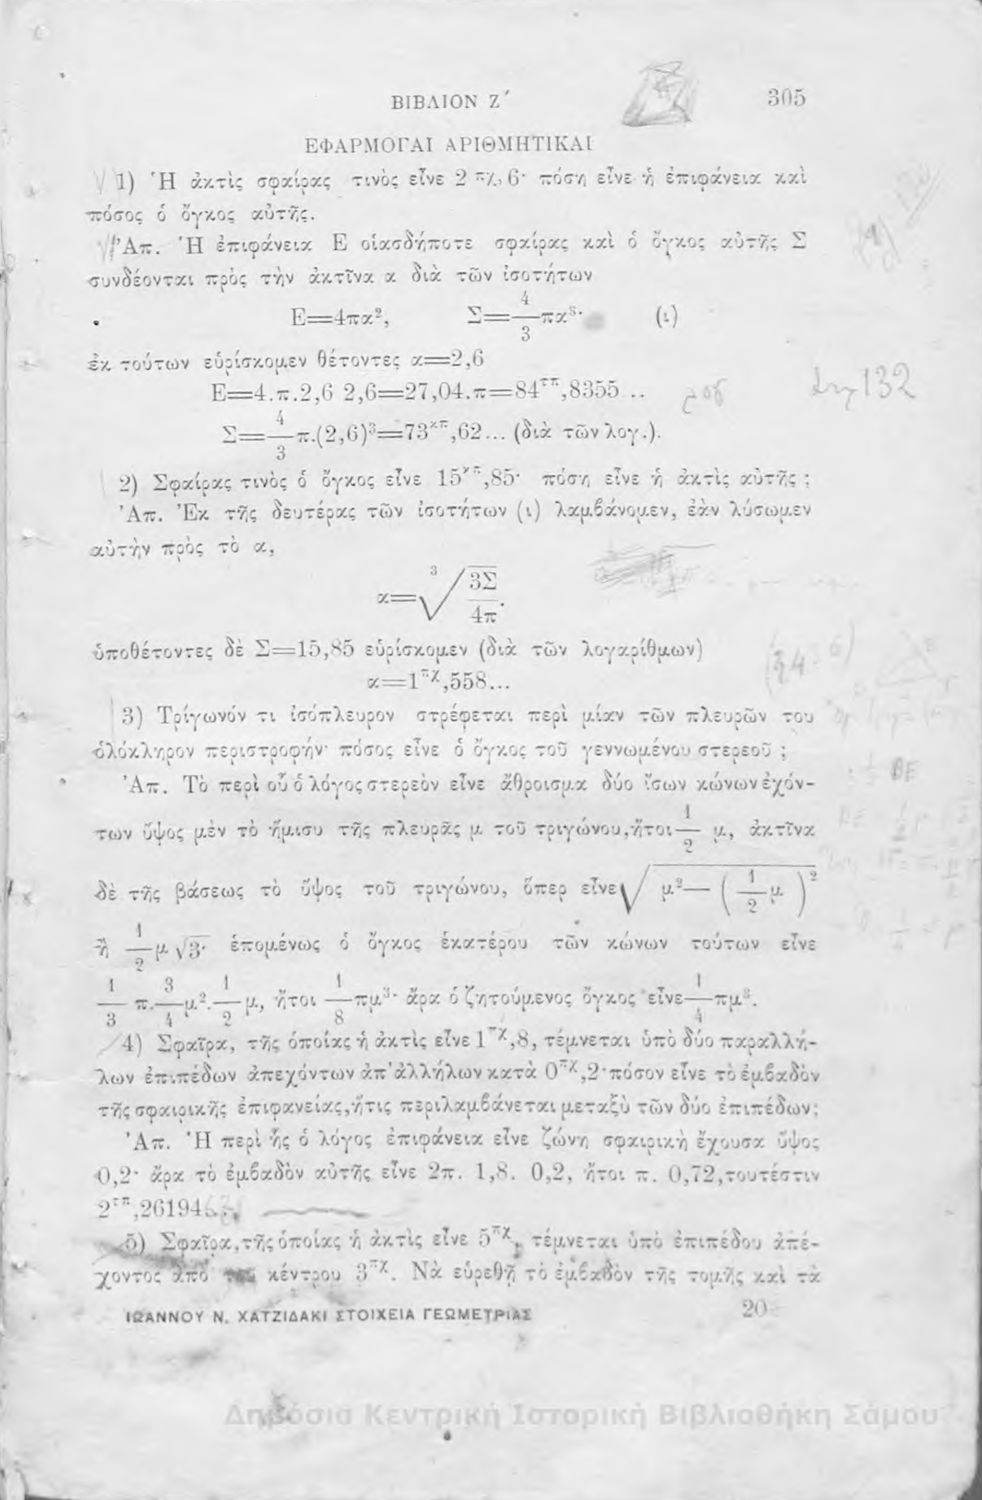 ΒΙΒΛΙΟΝ Ζ΄
305
ΕΦΑΡΜΟΓΑΙ ΑΡΙΘΜΗΤΙΚΑΙ
1) Ἡ ἀκτὶς σφαίρας τινὸς εἶνε 2 πχ, 6· πόση εἶνε ἡ ἐπιφάνεια καὶ
πόσος ὁ ὄγκος αὐτῆς.
Ἀπ. Ἡ ἐπιφάνεια Ε οἱασδήποτε σφαίρας καὶ ὁ ὄγκος αὐτῆς Σ
συνδέονται πρὸς τὴν ἀκτῖνα α διὰ τῶν ἰσοτήτων
Ε=4πα², Σ=4/3 πα³· (ι)
ἐκ τούτων εὑρίσκομεν θέτοντες α=2,6
Ε=4.π.2,6 2,6=27,04.π=84ππ,8355 ..
Σ=4/3 π.(2,6)³=73κπ,62... (διὰ τῶν λογ.).
λυ 132
2) Σφαίρας τινὸς ὁ ὄγκος εἶνε 15κπ,85· πόση εἶνε ἡ ἀκτὶς αὐτῆς ;
Ἀπ. Ἐκ τῆς δευτέρας τῶν ἰσοτήτων (ι) λαμβάνομεν, ἐὰν λύσωμεν
αὐτὴν πρὸς τὸ α,
α=∛(3Σ/4π).
ὑποθέτοντες δὲ Σ=15,85 εὑρίσκομεν (διὰ τῶν λογαρίθμων)
α=1πχ,558...
3) Τρίγωνόν τι ἰσόπλευρον στρέφεται περὶ μίαν τῶν πλευρῶν του
ὁλόκληρον περιστροφήν· πόσος εἶνε ὁ ὄγκος τοῦ γεννωμένου στερεοῦ ;
Ἀπ. Τὸ περὶ οὗ ὁ λόγος στερεὸν εἶνε ἄθροισμα δύο ἴσων κώνων ἐχόν-
των ὕψος μὲν τὸ ἥμισυ τῆς πλευρᾶς μ τοῦ τριγώνου, ἤτοι 1/2 μ, ἀκτῖνα
δὲ τῆς βάσεως τὸ ὕψος τοῦ τριγώνου, ὅπερ εἶνε √(μ²—(1/2 μ)²)
ἢ 1/2 μ √3· ἑπομένως ὁ ὄγκος ἑκατέρου τῶν κώνων τούτων εἶνε
1/3 π. 3/4 μ². 1/2 μ, ἤτοι 1/8 πμ³· ἄρα ὁ ζητούμενος ὄγκος εἶνε 1/4 πμ³.
4) Σφαῖρα, τῆς ὁποίας ἡ ἀκτὶς εἶνε 1πχ,8, τέμνεται ὑπὸ δύο παραλλή-
λων ἐπιπέδων ἀπεχόντων ἀπ' ἀλλήλων κατὰ 0πχ,2· πόσον εἶνε τὸ ἐμβαδὸν
τῆς σφαιρικῆς ἐπιφανείας, ἥτις περιλαμβάνεται μεταξὺ τῶν δύο ἐπιπέδων;
Ἀπ. Ἡ περὶ ἧς ὁ λόγος ἐπιφάνεια εἶνε ζώνη σφαιρικὴ ἔχουσα ὕψος
0,2· ἄρα τὸ ἐμβαδὸν αὐτῆς εἶνε 2π. 1,8. 0,2, ἤτοι π. 0,72, τουτέστιν
2ππ,26194...
5) Σφαῖρα, τῆς ὁποίας ἡ ἀκτὶς εἶνε 5πχ, τέμνεται ὑπὸ ἐπιπέδου ἀπέ-
χοντος ἀπὸ τοῦ κέντρου 3πχ. Νὰ εὑρεθῇ τὸ ἐμβαδὸν τῆς τομῆς καὶ τὰ
ΙΩΑΝΝΟΥ Ν. ΧΑΤΖΙΔΑΚΙ ΣΤΟΙΧΕΙΑ ΓΕΩΜΕΤΡΙΑΣ
20
Δημόσια Κεντρική Ιστορική Βιβλιοθήκη Σάμου